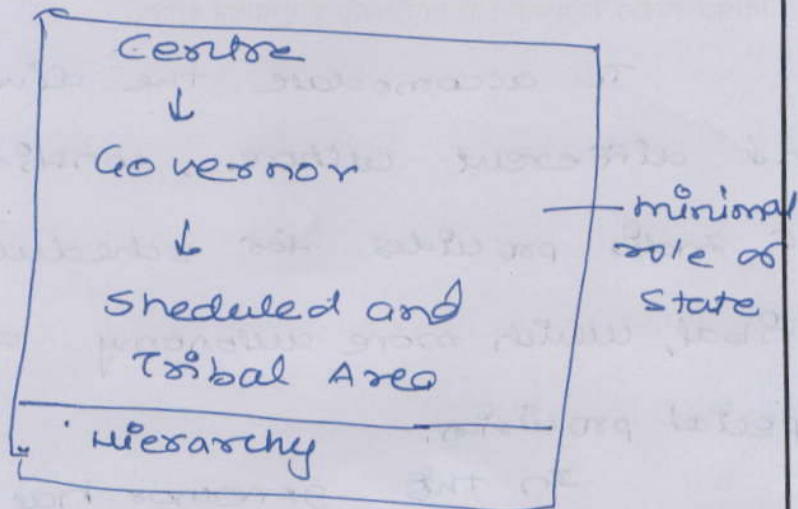 Centre
↓
Governor
↓
Sheduled and
Tribal Area
Hierarchy
minimal
role of
State